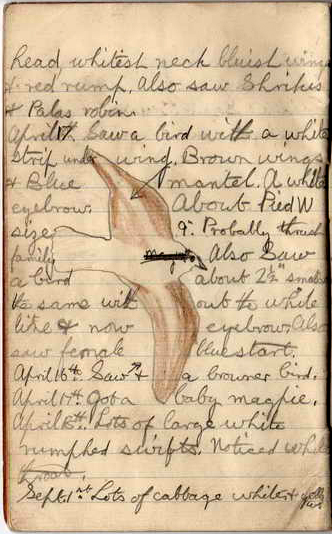 head whitest neck bluish wing
& red rump. Also saw Shrikes
& Palas robin.
April 17. Saw a bird with a white
strip under wing. Brown wings
& Blue mantel. A white
eyebrow. About Pied W
size 9". Probably thrush
family Also Saw
a bird about 2½" smaller
the same with out the white
line & now eyebrow. Also
saw female bluestart.
April 16th Saw a browner bird.
April 17th Got a baby magpie.
April 18th Lots of large white
rumphed swifts. Noticed white
throat.
Sept 1st Lots of cabbage white &